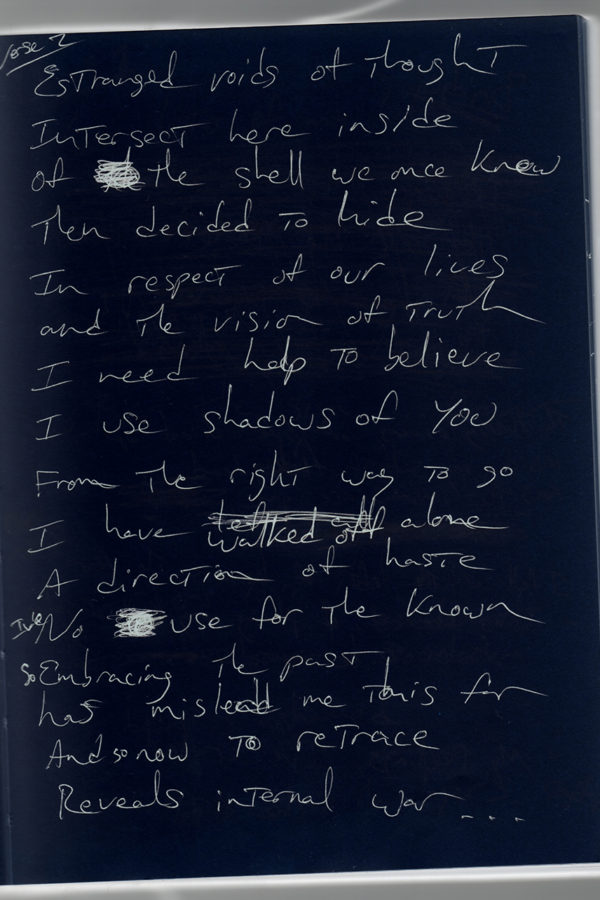 Estranged voids of thought
Intersect here inside
of the shell we once knew
Then decided to hide
In respect of our lives
and the vision of truth
I need help to believe
I use shadows of you
From the right way to go
I have walked off alone
A direction of haste
I've No use for the known
So Embracing the past
has mislead me this far
And so now to retrace
Reveals internal war....